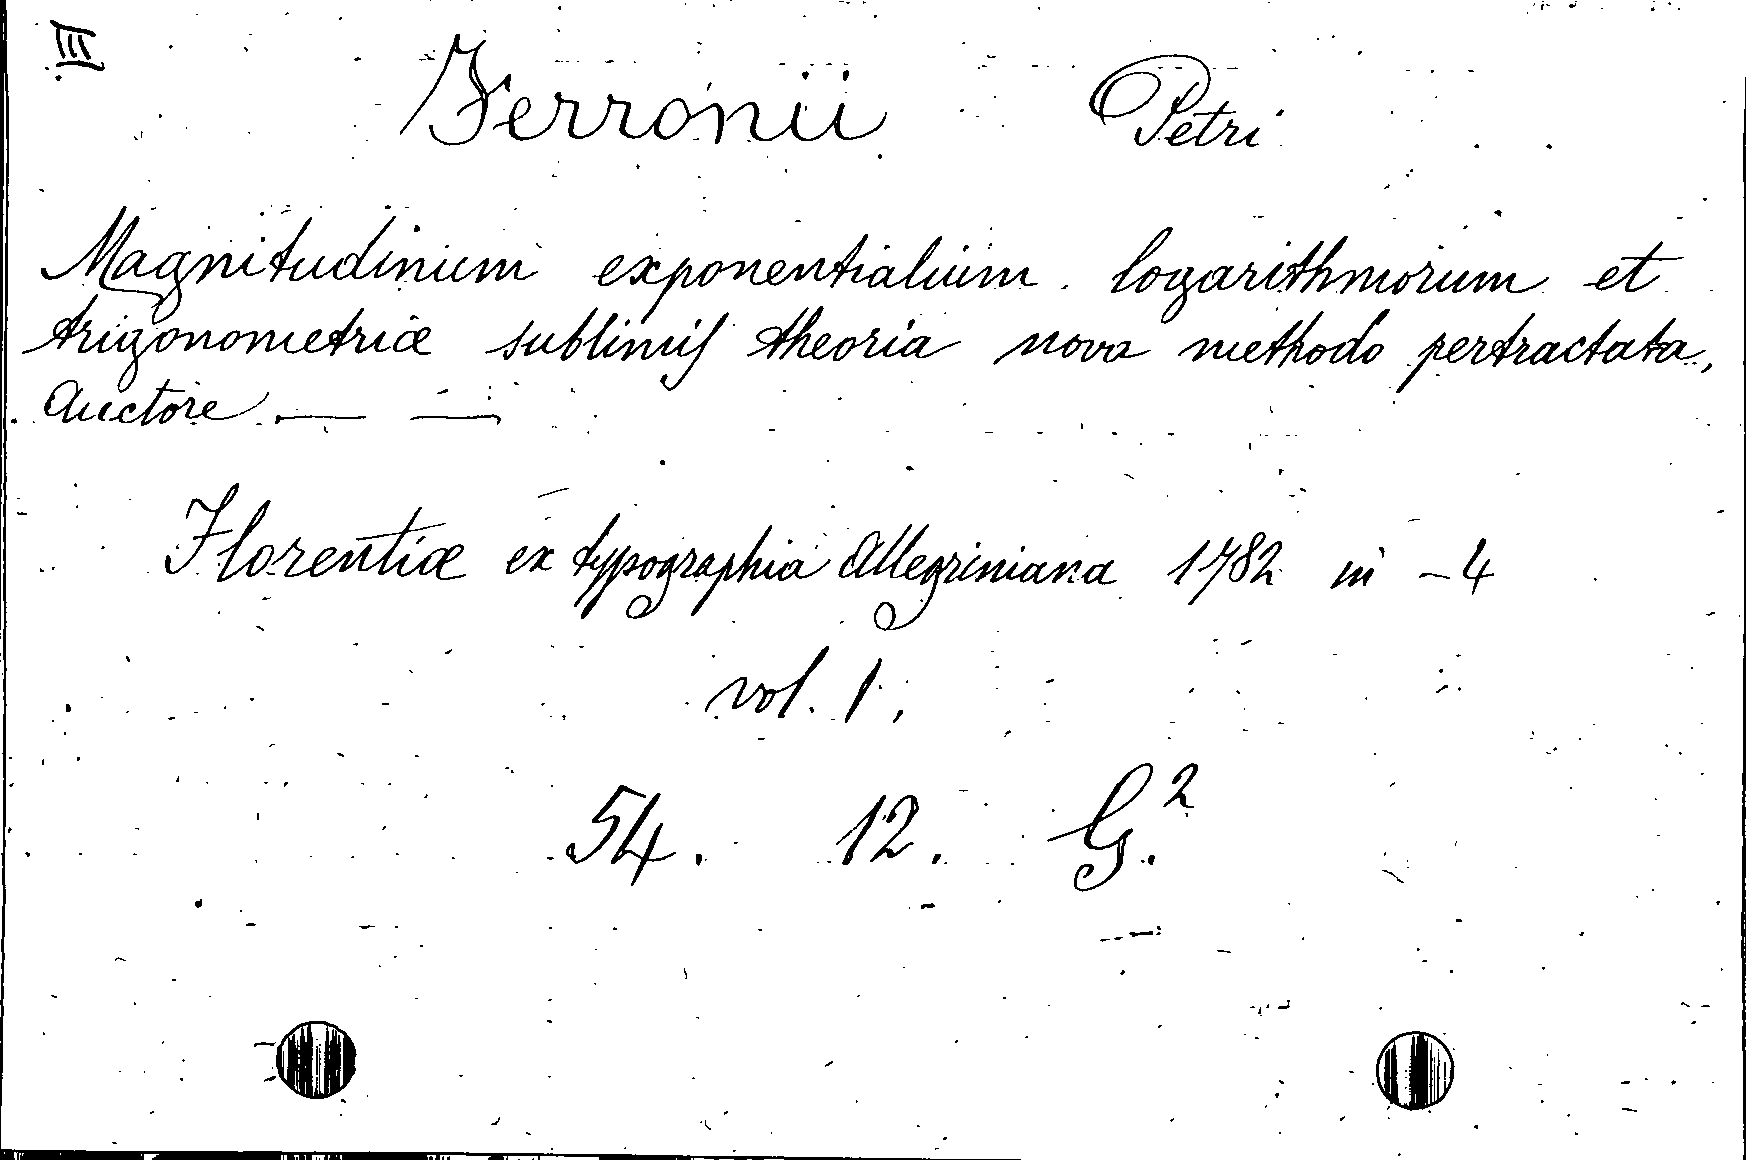 III
Ferronii Petri
Magnitudinum exponentialium logarithmorum et
trigonometriæ sublimis theoria nova methodo pertractata,
Auctore — —
Florentiæ ex typographia Allegriniana 1782 in -4
vol. 1,
54. 12. G.²